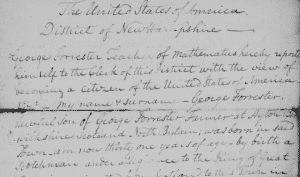 The United States of America
District of New Hampshire —
George Forrester Teacher of Mathematics hereby reports
himself to the Clerk of this District with the view of
becoming a citizen of the United States of America
my name & surname – George Forrester,
son of George Forrester Farmer at
Scotland North Britain, was born in said
Town, am now thirty one years of age – by birth a
Scotchman under allegiance to the King of Great
to this Town in